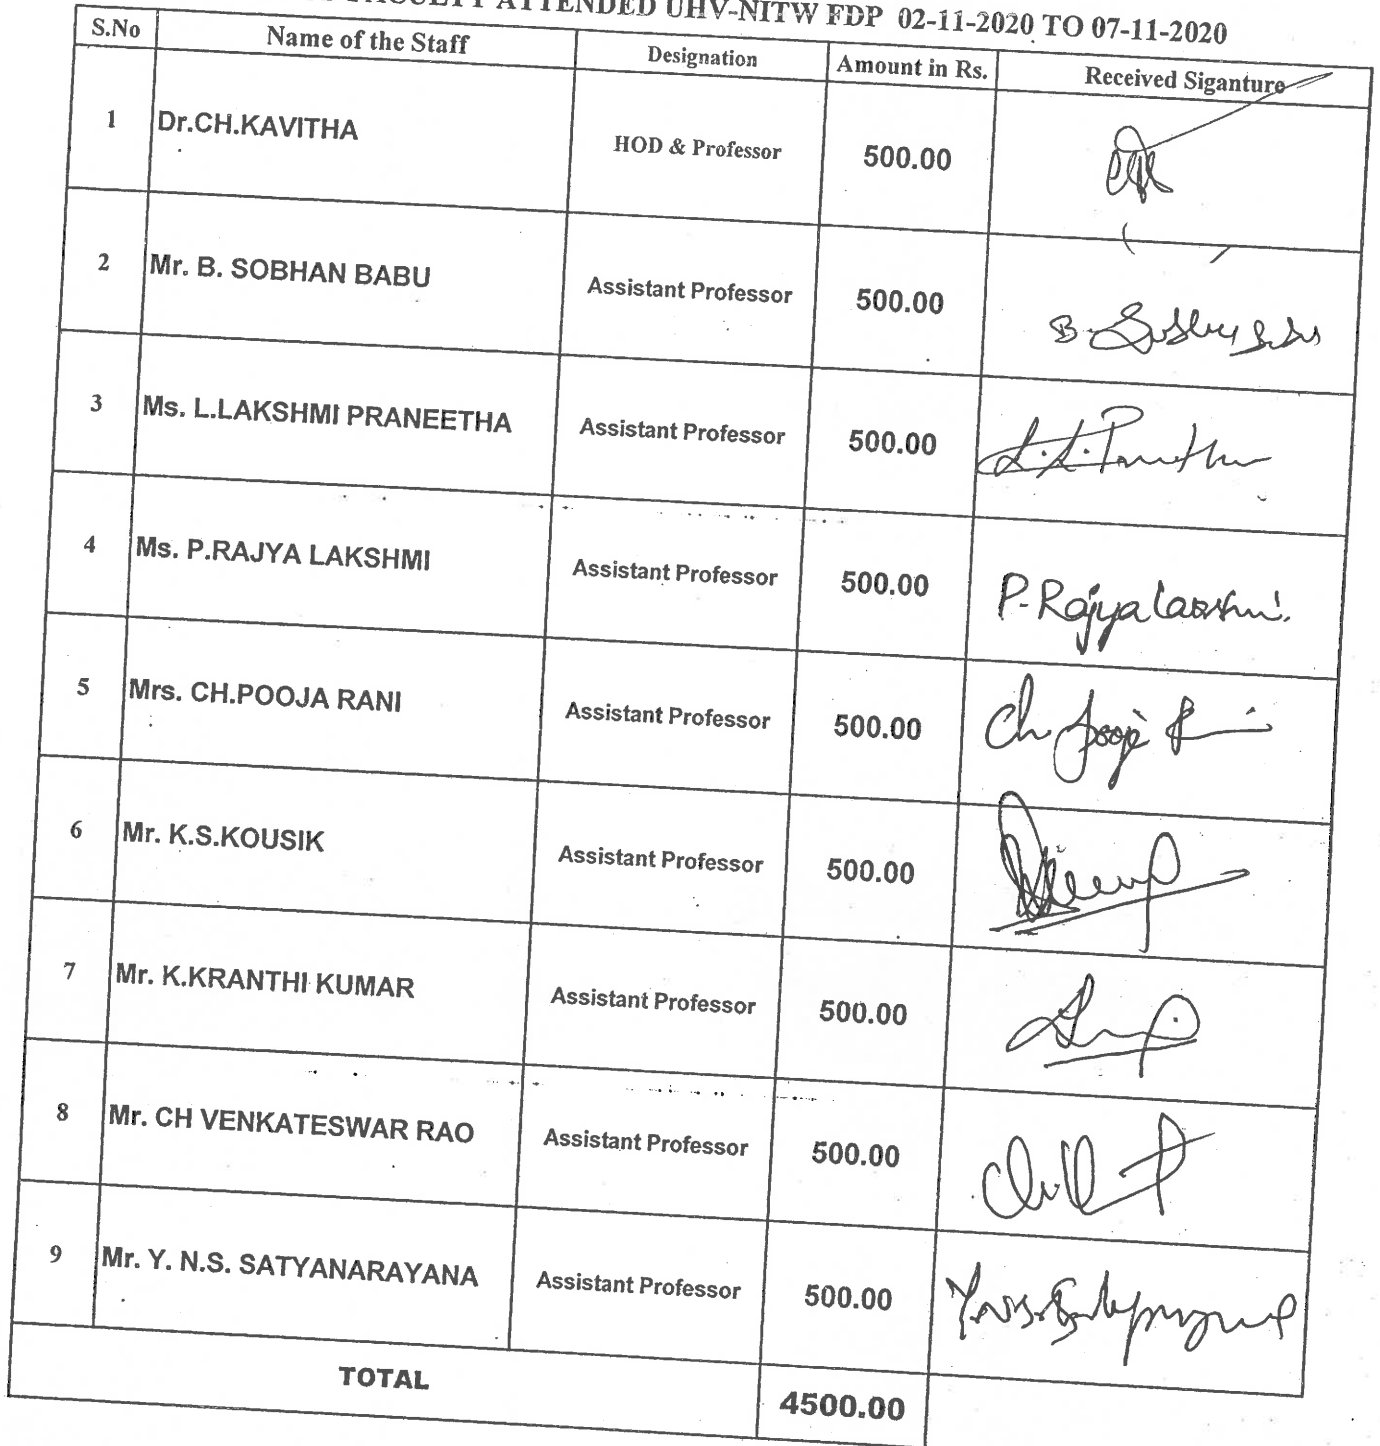 FACULTY ATTENDED UHV-NITW FDP 02-11-2020 TO 07-11-2020
S.No Name of the Staff Designation Amount in Rs. Received Siganture
1 Dr.CH.KAVITHA HOD & Professor 500.00
2 Mr. B. SOBHAN BABU Assistant Professor 500.00 B.
3 Ms. L.LAKSHMI PRANEETHA Assistant Professor 500.00 L.L.Praneetha
4 Ms. P.RAJYA LAKSHMI Assistant Professor 500.00 P.Rajya Lakshmi.
5 Mrs. CH.POOJA RANI Assistant Professor 500.00 Ch Pooja
6 Mr. K.S.KOUSIK Assistant Professor 500.00
7 Mr. K.KRANTHI KUMAR Assistant Professor 500.00
8 Mr. CH VENKATESWAR RAO Assistant Professor 500.00
9 Mr. Y. N.S. SATYANARAYANA Assistant Professor 500.00
TOTAL 4500.00